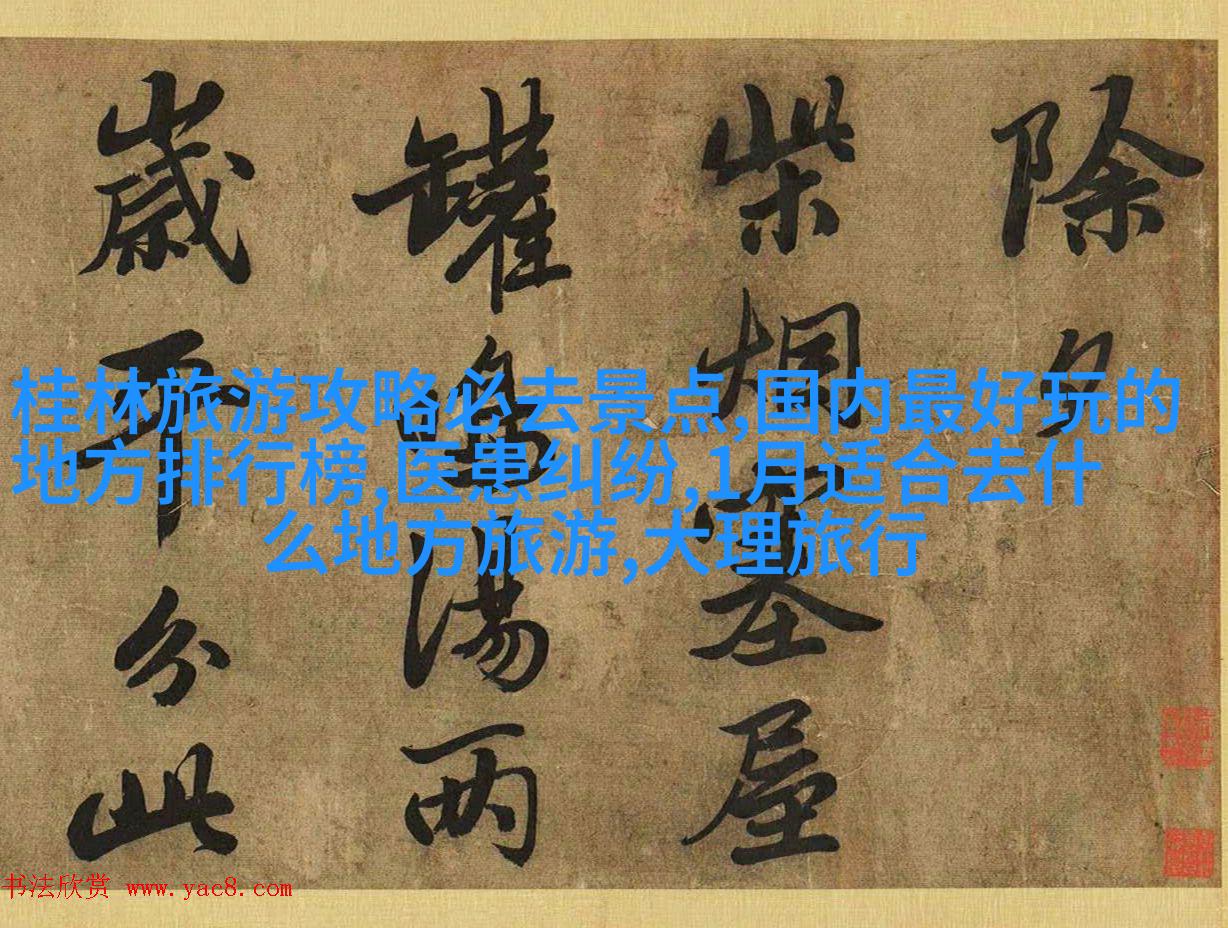 除夕
柴烟塞屋
罐鳴湯两
歳平分此
桂林旅游攻略必去景点,国内最好玩的
地方排行榜,医患纠纷,1月适合去什
么地方旅游,大理旅行
书法欣赏 www.yac8.com